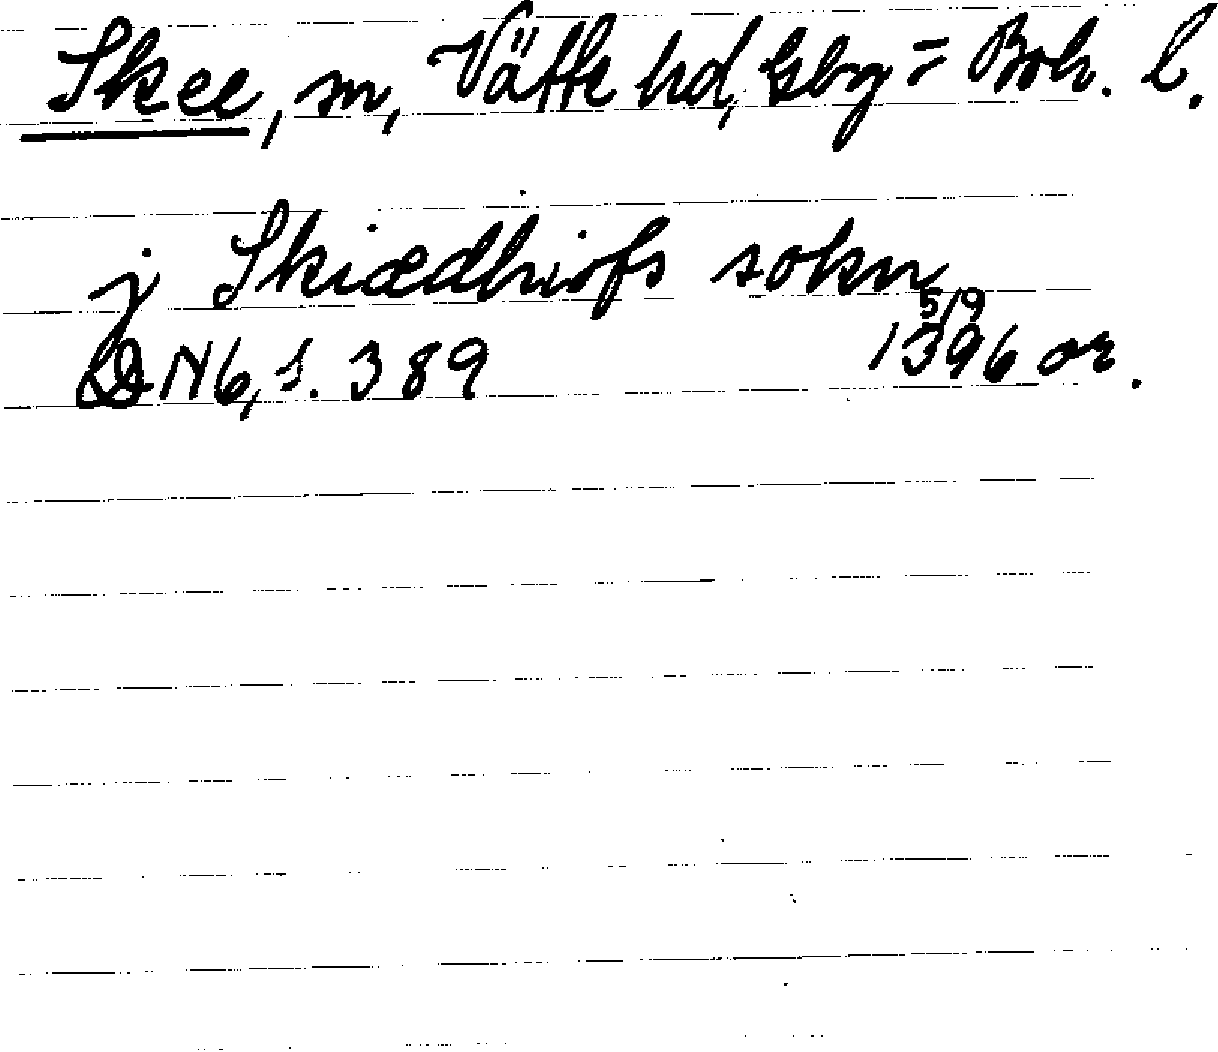 Skee, sn, Vätte hd, Gbg = Boh. l.
j Skiædhiofs sokn
5/9
DN 6, s. 389 1396 or.